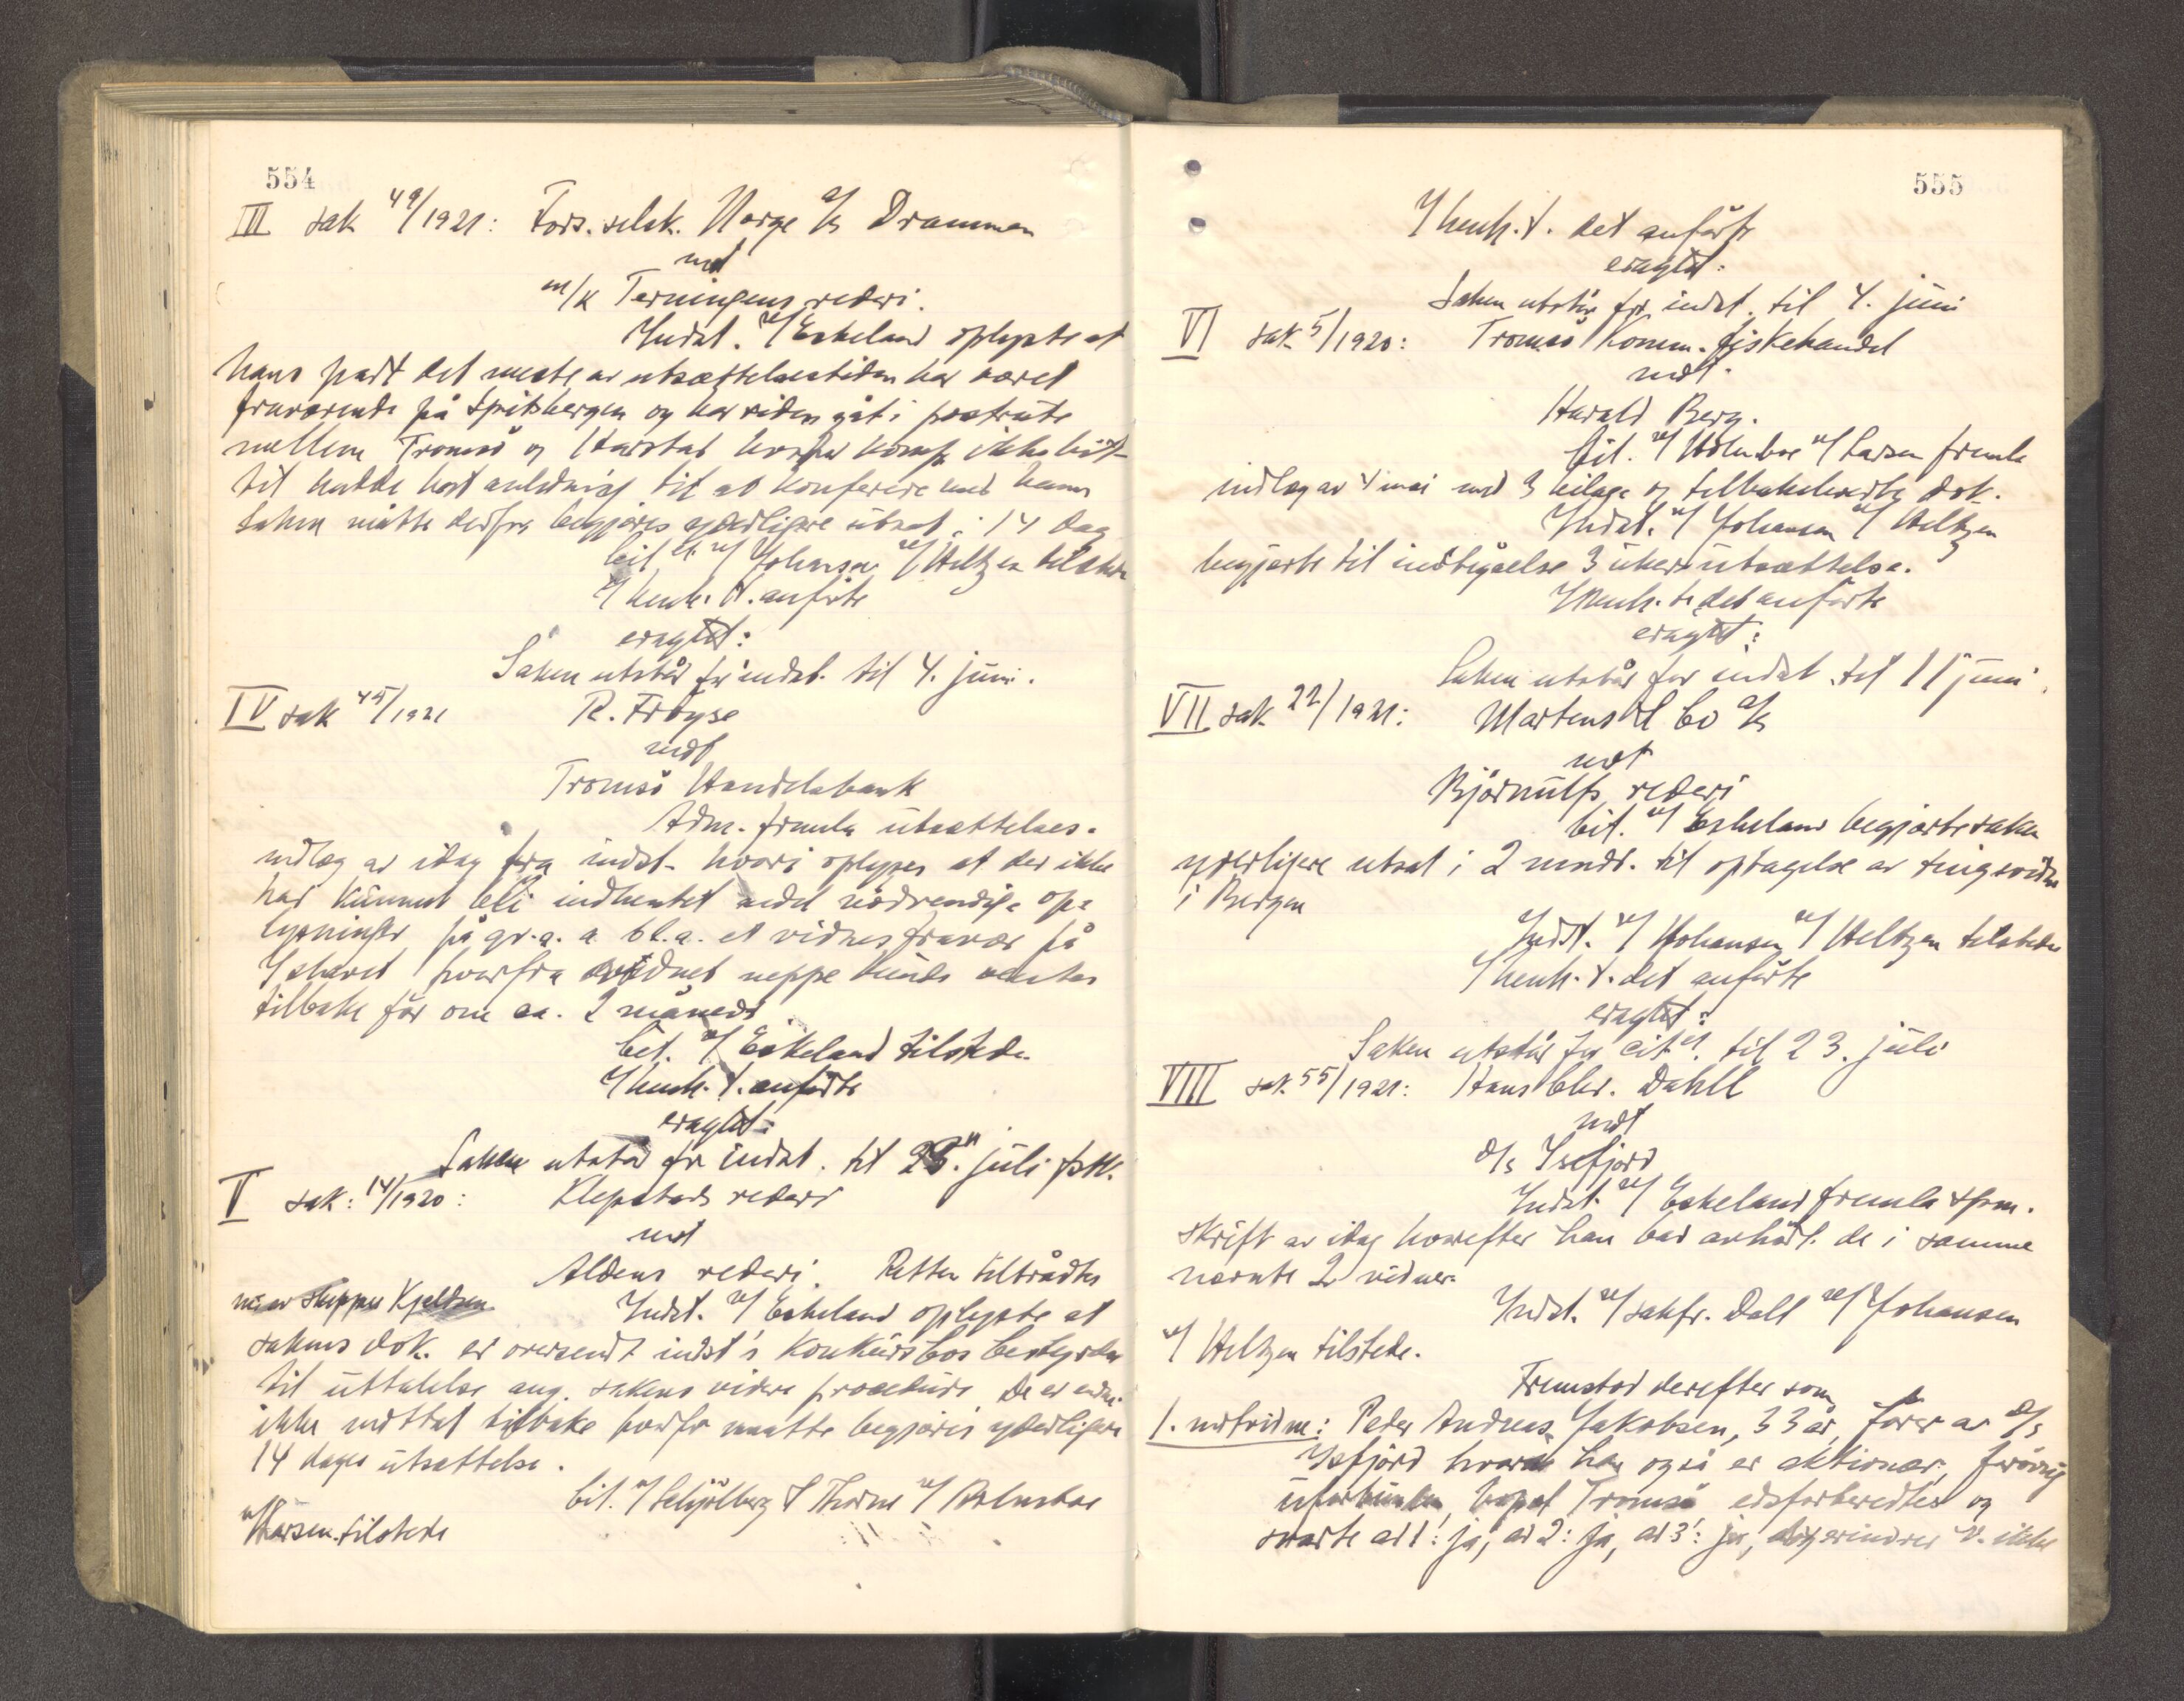 554
III sak 49/1921: Fors. selsk. Norge A/S Drammen
mot
m/k Terningens rederi.
Indst. v/ Eskeland oplyste at
hans part det meste av utsættelsestiden har været
fraværende på Spitsbergen og har siden gåt i postrute
mellem Tromsø og Harstad hvorfor komp. ikke hit-
til hadde hat anledning til at konferere med ham
Saken måtte derfor begjæres yderligere utsat i 14 dag
Cit. v/ Johansen v/ Heltzen tilstede
I henh. t. anførte
eragtet:
Saken utstår for indst. til 4. juni.
IV sak 45/1921 R. Frøyse
mot
Tromsø Handelsbank
Adm. fremla utsættelses-
indlæg av idag fra indst. hvori oplyses at der ikke
har kunnet bli indhentet endel nødvendige op-
lysninger på gr. a. bl.a. et vidnes fravær på
Ishavet hvorfra vidnet neppe kunde ventes
tilbake før om ca. 2 måneder
Cit. v/ Eskeland tilstede.
I henh. t. anførte
eragtet:
Saken utstår for indst. til 23. juli
V sak: 14/1920: Klepstads rederi
mot
Aldens rederi. Retten tiltrådtes
av skipper Kjeldsen
Indst. v/ Eskeland oplyste at
sakens dok. er oversendt indst's konkursbos bestyrelse
til uttalelse ang. sakens videre procedure. De er endnu
ikke mottat tilbake hvorfor maatte begjæres yderligere
14 dages utsættelse.
Cit. v/ Schjølberg & Thorne v/ Holmboe
v/ Larsen tilstede
555
I henh. t. det anførte
eragtet:
Saken utstår for indst. til 4. juni
VI sak 5/1920: Tromsø Komm. fiskehandel
mot
Harald Berg.
Cit. v/ Holmboe v/ Larsen fremla
indlæg av 4 mai med 3 bilage og tilbakeleverte dok.
Indst. v/ Johansen v/ Heltzen
begjærte til indtgåelse 3 ukers utsættelse.
I henh. t. det anførte
eragtet:
Saken utstår for indst. til 11 juni.
VII sak 22/1921: Martens & Co A/S
mot
Bjørnulfs rederi
Cit. v/ Eskeland begjærte saken
yderligere utsat i 2 mndr. til optagelse av tingsvidne
i Bergen
Indst. v/ Johansen v/ Heltzen tilstede
I henh. t. det anførte
eragtet:
Saken utstår for cit. til 23. juli
VIII sak 55/1921: Hans Chr. Dahll
mot
D/S Isefjord
Indst. v/ Eskeland fremla spm.
skrift av idag hvorefter han bad avhørt de i samme
nævnte 2 vidner.
Indst. v/ sakfr. Dall v/ Johansen
v/ Heltzen tilstede.
Fremstod derefter som
1. motvidne: Peder Andreas Jakobsen, 33 år, fører av D/S
Isefjord hvori han også er aktionær, forøvrig
uforbunden, bopæl Tromsø edsforberedtes og
svarte ad 1: ja, ad 2: ja, ad 3: ja, dog erindrer v. ikke